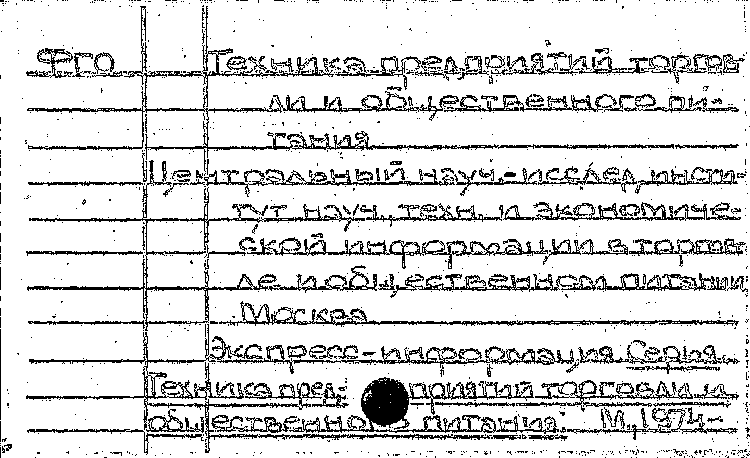 Фго Техника предприятий торгов-
ли и общественного пи-
тания
Центральный науч.-исслед. инсти-
тут науч., техн. и экономиче-
ской информации в торгов-
ле и общественном питании
Москва
Экспресс-информация. Серия.
Техника пред- приятий торговли и
общественного питания: М., 1974-